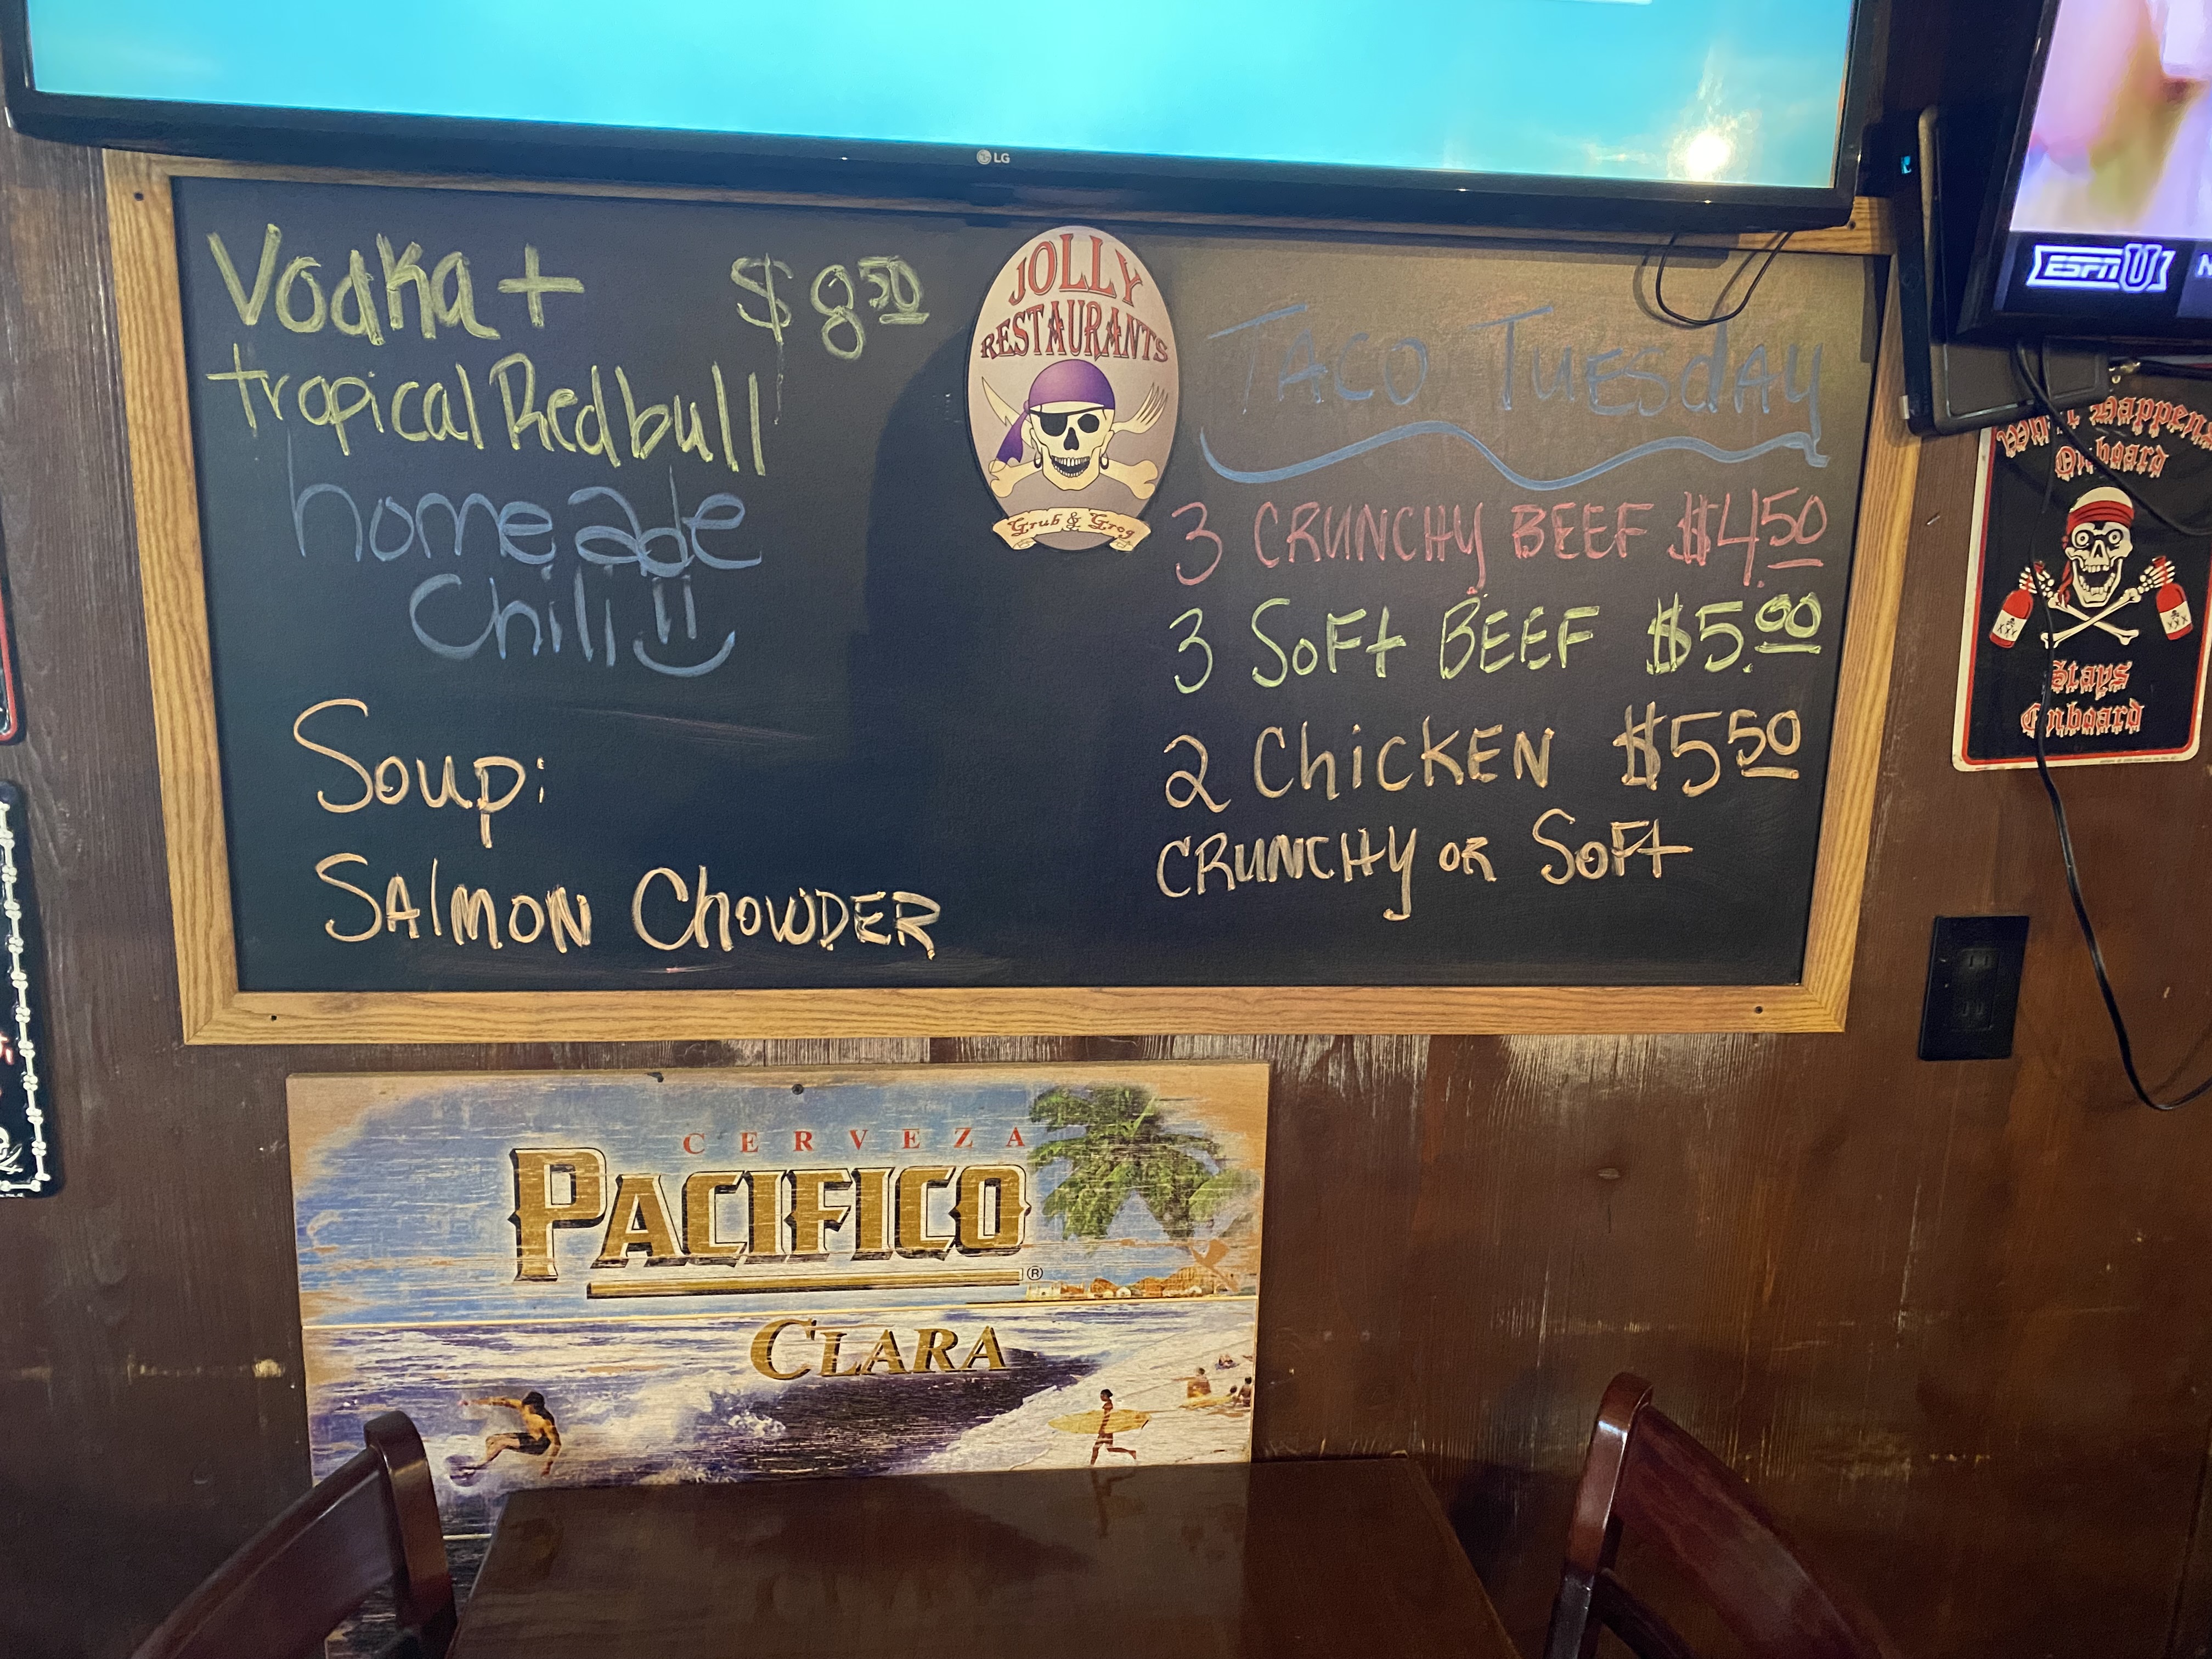 LG
Vodka + $8.50
tropical Redbull
homeade
Chili
Soup:
SAlMON ChOWDER
JOLLY
RESTAURANTS
Grub & Grog
TACO TUESdAY
3 CRUNCHY BEEF $4.50
3 SOFt BEEF $5.00
2 ChiCKEN $5.50
CRUNCHY OR SOFt
ESPN U
Onboard
XXX
XXX
Stays
Onboard
CERVEZA
PACIFICO
®
CLARA